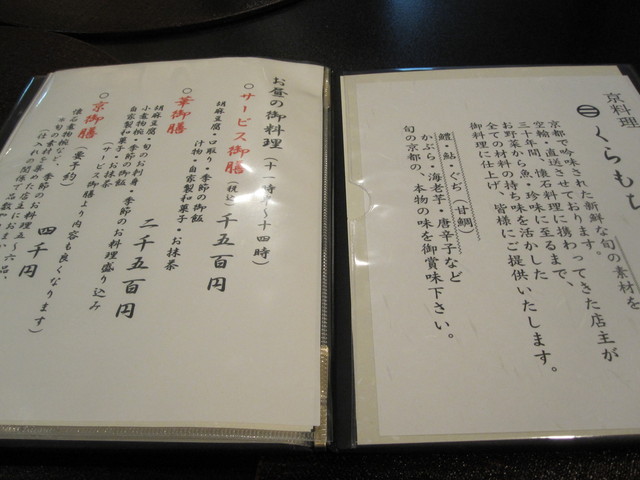 京料理
くらもち
京都で吟味された新鮮な旬の素材を
空輸・直送させております。
三十年間、懐石料理に携わってきた店主が
お野菜から魚・珍味に至るまで、
全ての材料の持ち味を活かした
御料理に仕上げ、皆様にご提供いたします。
鱧・鮎・ぐぢ(甘鯛)
かぶら・海老芋・唐辛子など
旬の京都の、本物の味を御賞味下さい。
お昼の御料理(十一時半〜十四時)
○サービス御膳(税込)千五百円
胡麻豆腐・口取り・季節の御飯
汁物・自家製和菓子・お抹茶
○華御膳 二千五百円
胡麻豆腐・旬のお刺身・季節のお料理盛り込み
小煮物椀・季節の御飯
自家製和菓子・お抹茶
(サービス御膳より内容も良くなります)
○京御膳(要予約) 四千円
懐石煮物椀など、季節のお料理五〜六品、
*旬の素材を集めた